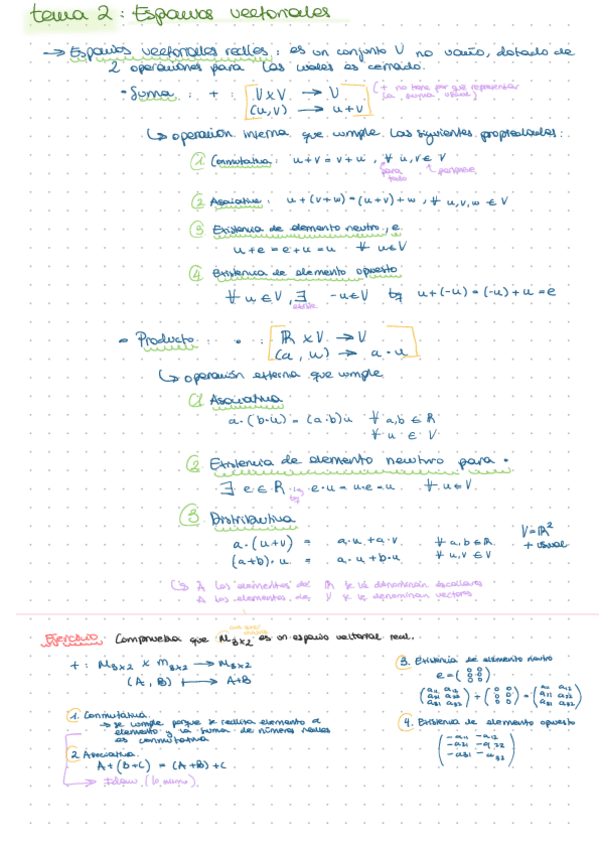 tema 2: Espacios vectoriales
→ Espacios vectoriales reales: es un conjunto V no vacío, dotado de
2 operaciones para las cuales es cerrado.
- Suma : + : V x V → V
(u,v) → u+v
(+ no tiene por que representar
la suma usual)
↳ operación interna que cumple las siguientes propiedades:
① Conmutativa: u+v = v+u, ∀ u,v ∈ V
para todo
↑ pertenece
② Asociativa: u+(v+w) = (u+v)+w, ∀ u,v,w ∈ V
③ Existencia de elemento neutro, e
u+e = e+u = u ∀ u∈V
④ Existencia de elemento opuesto
∀ u ∈ V, ∃ -u∈V tq u+(-u) = (-u)+u = e
existe
• Producto : • : ℝ x V → V
(a, u) → a·u
↳ operación externa que cumple
① Asociativa
a·(b·u) = (a·b)u ∀ a,b ∈ ℝ
∀ u ∈ V
② Existencia de elemento neutro para •
∃ e ∈ ℝ tq e·u = u·e = u ∀ u∈V
③ Distributiva
a·(u+v) = a·u + a·v ∀ a,b∈ℝ
(a+b)·u = a·u + b·u ∀ u,v ∈ V
V=ℝ²
+ usual
↳ A los elementos de ℝ se le denominan escalares
A los elementos de V se le denominan vectores
Ejercicio: Comprueba que M3x2 es un espacio vectorial real.
+ : M3x2 x M3x2 → M3x2
(A, B) ↦ A+B
1. Conmutativa.
→ se cumple porque se realiza elemento a
elemento y la suma de números reales
es conmutativa
2. Asociativa.
A+(B+C) = (A+B)+C
(lo mismo)
3. Existencia de elemento neutro
e = (0 0
0 0
0 0)
(a11 a12
a21 a22
a31 a32) + (0 0
0 0
0 0) = (a11 a12
a21 a22
a31 a32)
4. Existencia de elemento opuesto
(-a11 -a12
-a21 -a22
-a31 -a32)